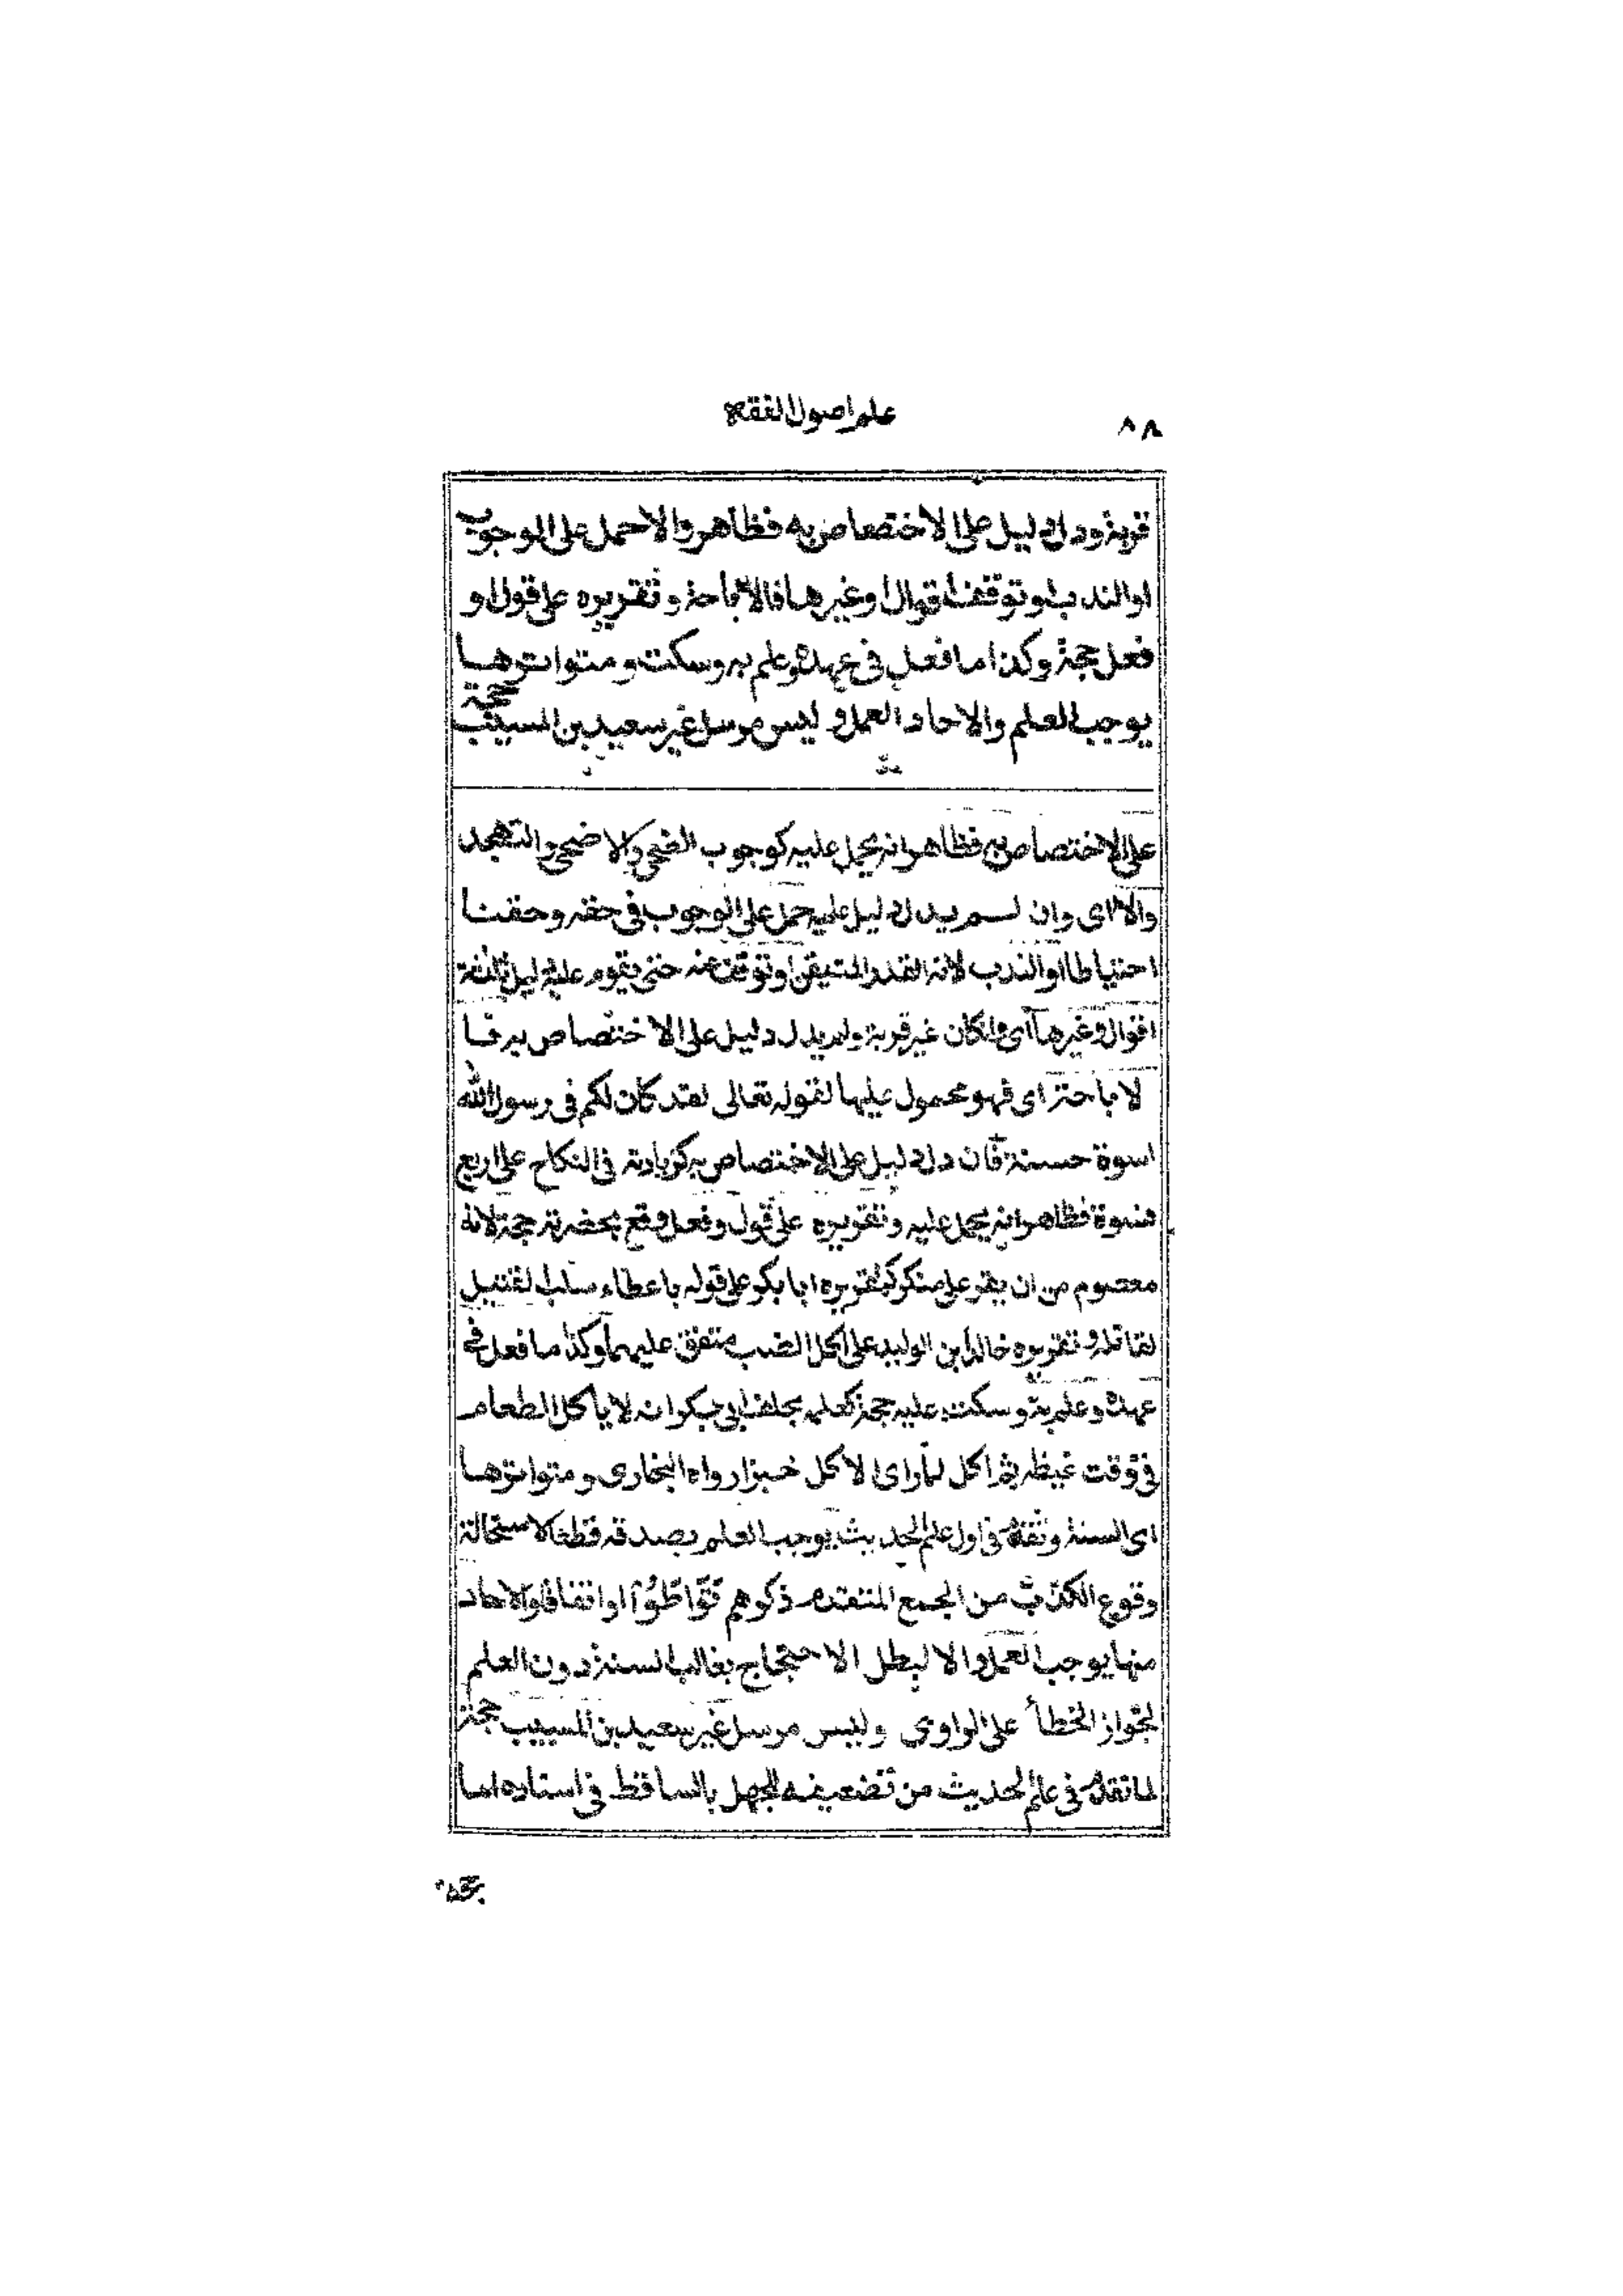 ٨٨
علم اصول الفقه
قربة ودل دليل على الاختصاص به فظاهر والا حمل على الوجوب
او الندب او توقف اقوال او غيرها فالاباحة وتقريره على قول او
فعل حجة وكذا ما فعل في عهده وعلم به وسكت ومتواترها
يوجب العلم والاحاد العمل وليس مرسل غير سعيد بن المسيب حجة
على الاختصاص به فظاهر انه يحمل عليه كوجوب الضحى والاضحى والتهجد
والا اى وان لم يدل دليل عليه حمل على الوجوب في حقه وحقنا
احتياطا او الندب لانه القدر المتيقن او توقف عنه حتى يقوم عليه دليل ثلثة
اقوال وغيرها اى وان كان غير قربة ولم يدل دليل على الاختصاص به فا
لاباحة اى فهو محمول عليها لقوله تعالى لقد كان لكم في رسول الله
اسوة حسنة فان دل دليل على الاختصاص به كزيادته في النكاح على اربع
نسوة فظاهر انه يحمل عليه وتقريره على قول وفعل وقع بحضرته حجة لانه
معصوم من ان يقر على منكر كتقريره ابا بكر على قوله باعطاء سلب القتيل
لقاتله وتقريره خالد ابن الوليد على اكل الضب متفق عليهما وكذا ما فعل في
عهده وعلم به وسكت عليه حجة كعلمه بحلف ابى بكر انه لا ياكل الطعام
في وقت غيظه ثم اكل لما راى الاكل خيرا رواه البخارى ومتواترها
اى السنة وتقدم في اول علم الحديث يوجب العلم بصدقه قطعا لاستحالة
وقوع الكذب من الجمع المتقدم ذكرهم تواطؤا او اتفاقا والاحاد
منها يوجب العمل والا لبطل الاحتجاج بغالب السنة دون العلم
لجواز الخطأ على الراوى وليس مرسل غير سعيد بن المسيب حجة
لما تقدم في علم الحديث من تضعيفه للجهل بالساقط في اسناده اما